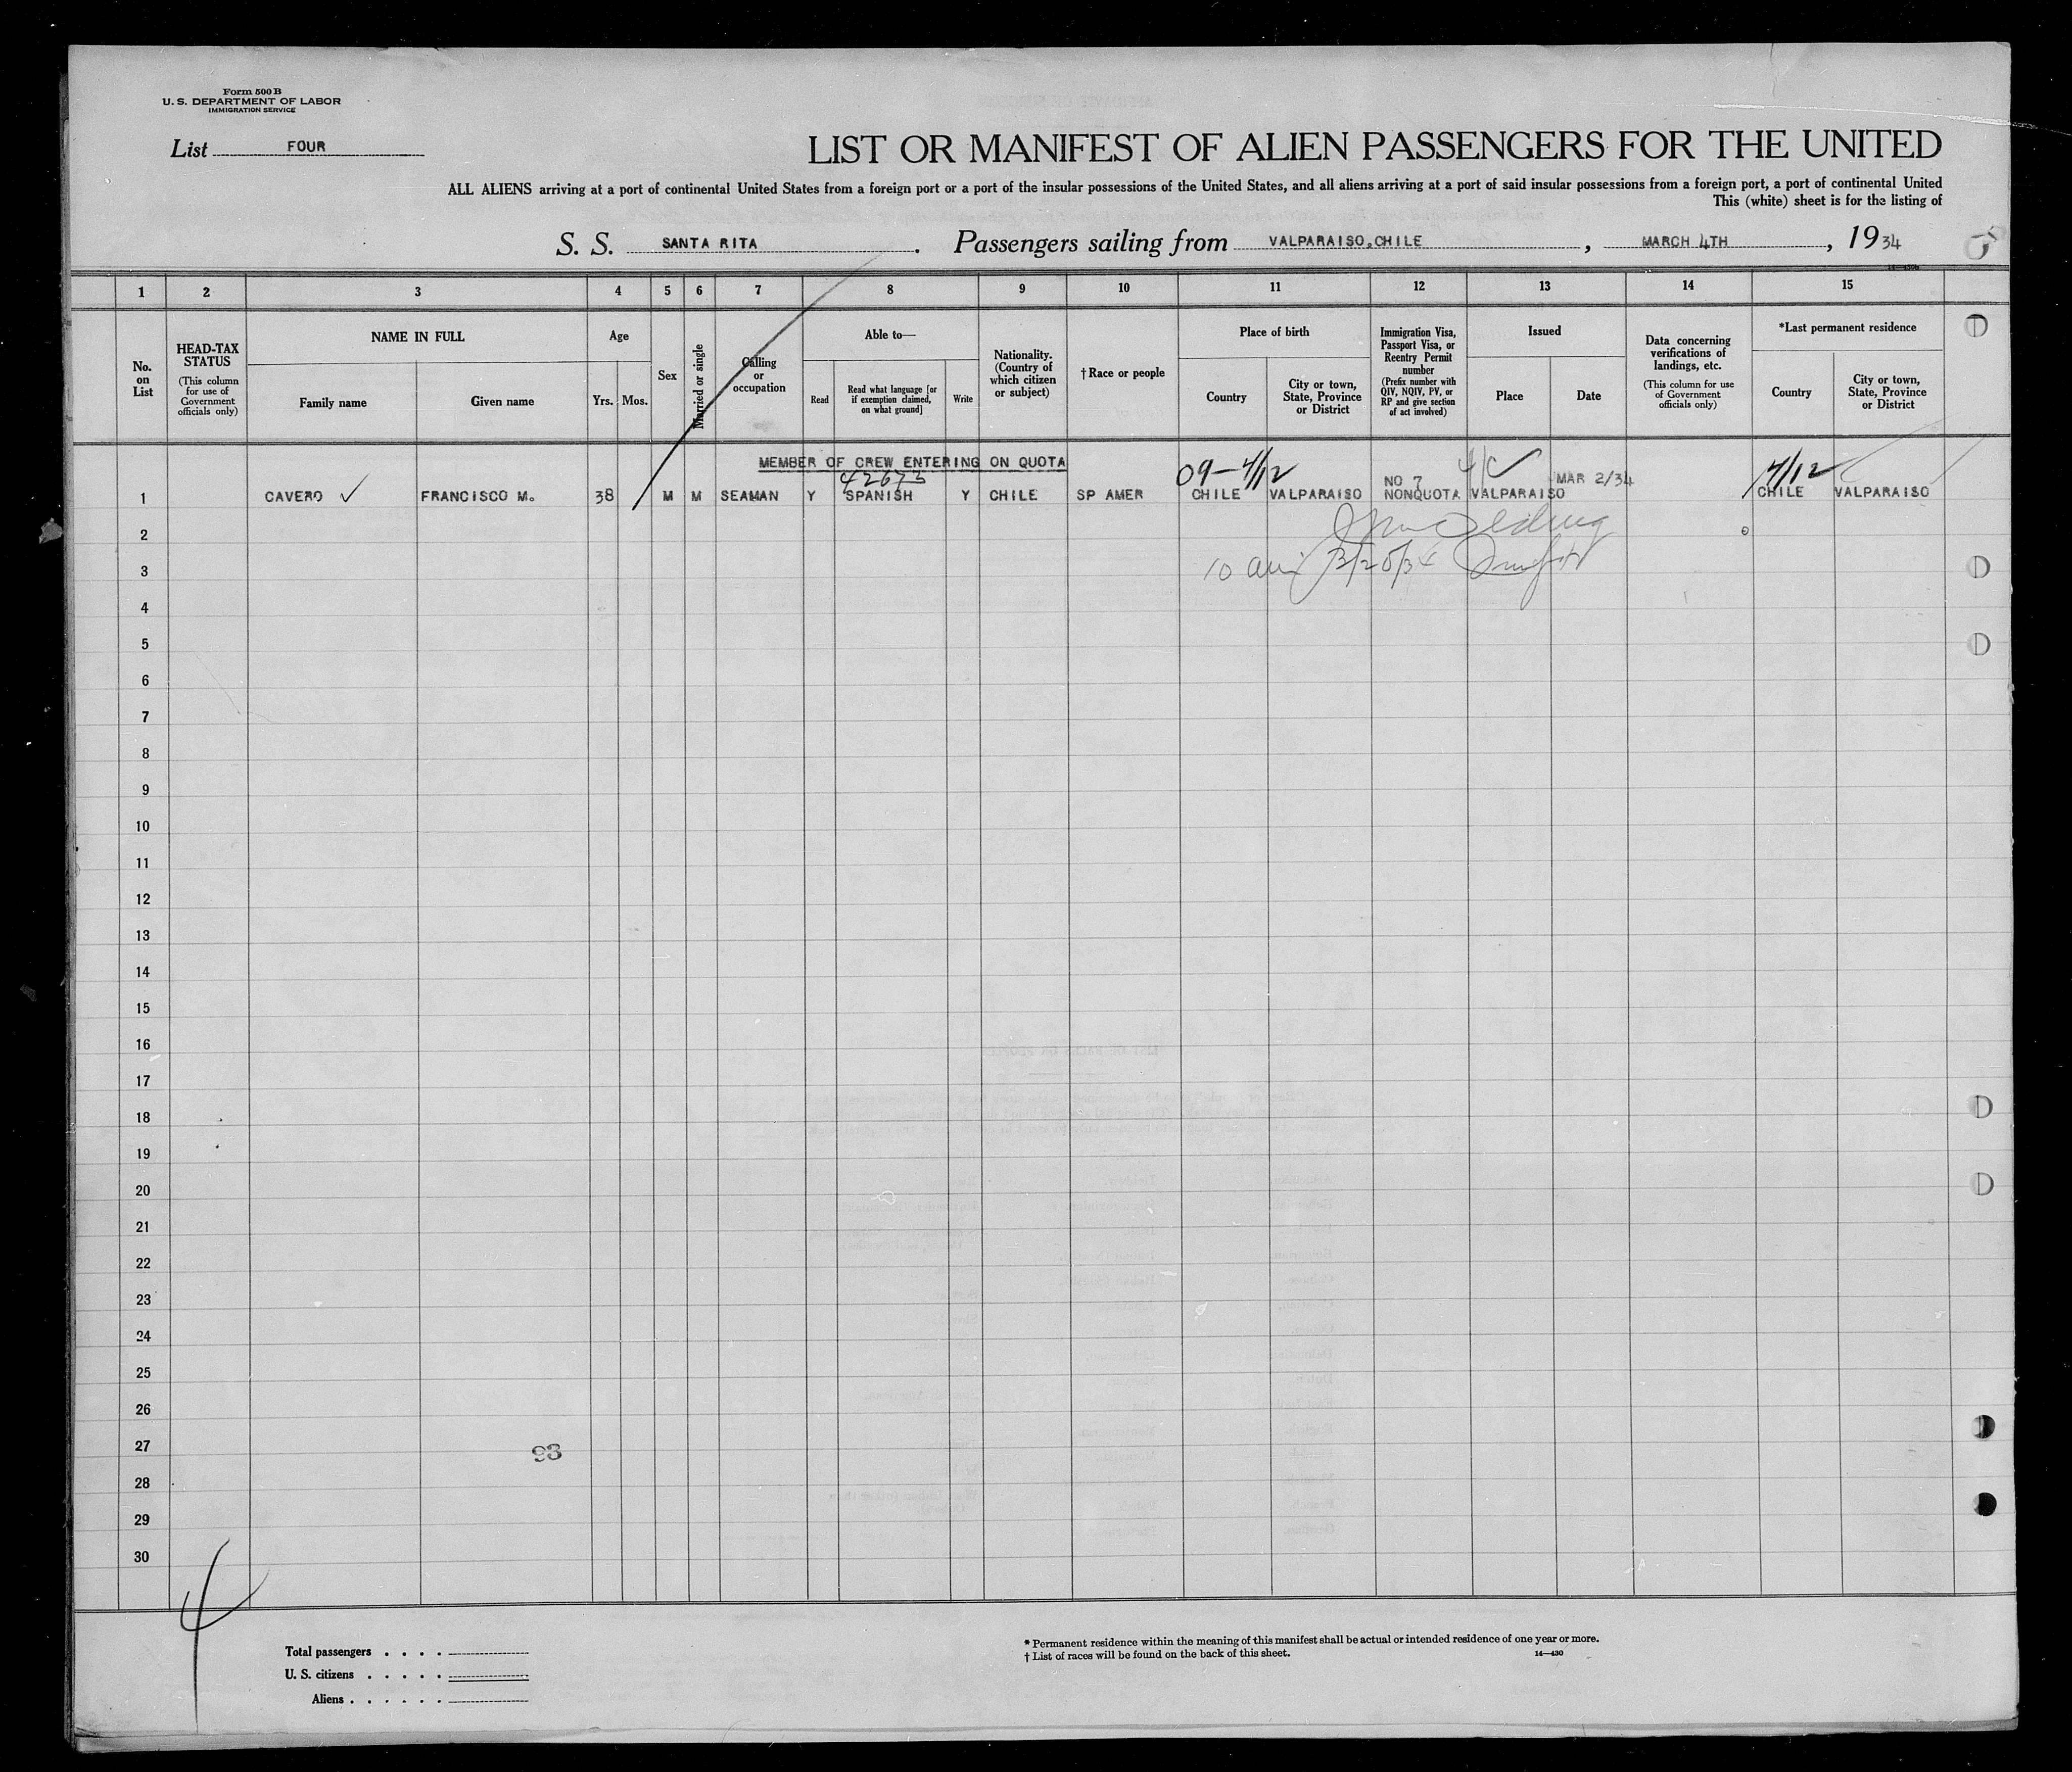 Form 500 B
U. S. DEPARTMENT OF LABOR
IMMIGRATION SERVICE
List FOUR
LIST OR MANIFEST OF ALIEN PASSENGERS FOR THE UNITED
ALL ALIENS arriving at a port of continental United States from a foreign port or a port of the insular possessions of the United States, and all aliens arriving at a port of said insular possessions from a foreign port, a port of continental United
This (white) sheet is for the listing of
S. S. SANTA RITA. Passengers sailing from VALPARAISO, CHILE, MARCH 4TH, 1934
1 2 3 4 5 6 7 8 9 10 11 12 13 14 15
No. on List
HEAD-TAX STATUS
(This column for use of Government officials only)
NAME IN FULL
Family name
Given name
Age
Yrs. Mos.
Sex
Married or single
Calling or occupation
Able to—
Read
Read what language [or if exemption claimed, on what ground]
Write
Nationality. (Country of which citizen or subject)
†Race or people
Place of birth
Country
City or town, State, Province or District
Immigration Visa, Passport Visa, or Reentry Permit number
(Prefix number with QIV, NQIV, PV, or RP and give section of act involved)
Issued
Place
Date
Data concerning verifications of landings, etc.
(This column for use of Government officials only)
*Last permanent residence
Country
City or town, State, Province or District
MEMBER OF CREW ENTERING ON QUOTA
42673
09-4/12
4/C
4/12
NO 7
MAR 2/34
1 CAVERO ✓ FRANCISCO M. 38 M M SEAMAN Y SPANISH Y CHILE SP AMER CHILE VALPARAISO NONQUOTA VALPARAISO CHILE VALPARAISO
2
3
10 3/20/34
4
5
6
7
8
9
10
11
12
13
14
15
16
17
18
19
20
21
22
23
24
25
26
27
93
28
29
30
4
Total passengers . . . .
U. S. citizens . . . . .
Aliens . . . . . .
* Permanent residence within the meaning of this manifest shall be actual or intended residence of one year or more.
† List of races will be found on the back of this sheet.
14—430